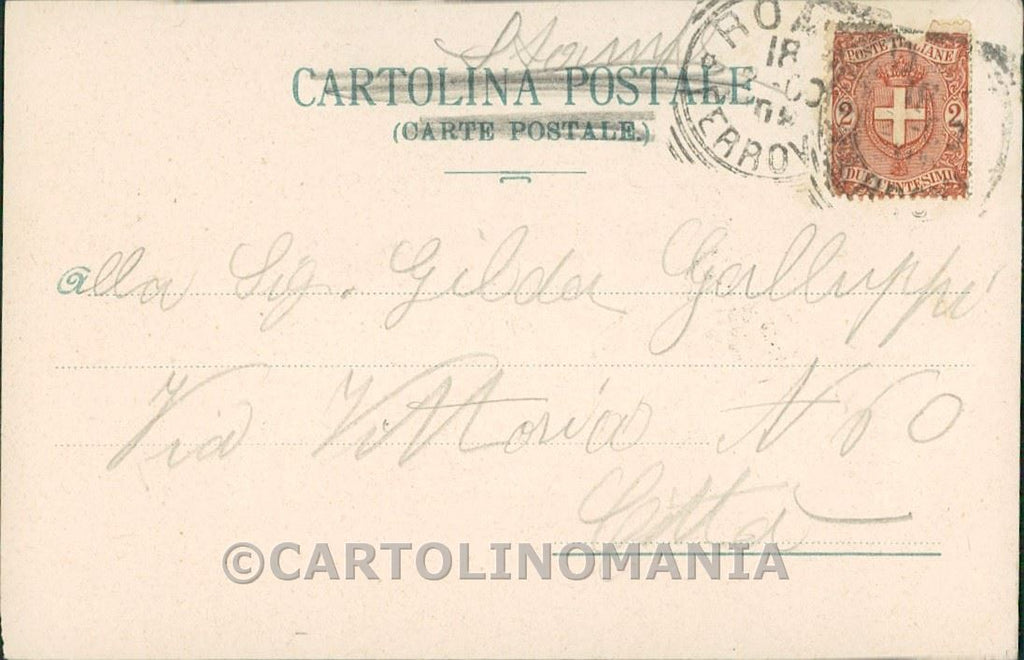 Stampe
CARTOLINA POSTALE
(CARTE POSTALE.)
ROMA
18
FERROVIA
POSTE ITALIANE
2 2
DUE CENTESIMI
alla Sig. Gilda Galluppi
Via Vittoria N 60
Città
©CARTOLINOMANIA